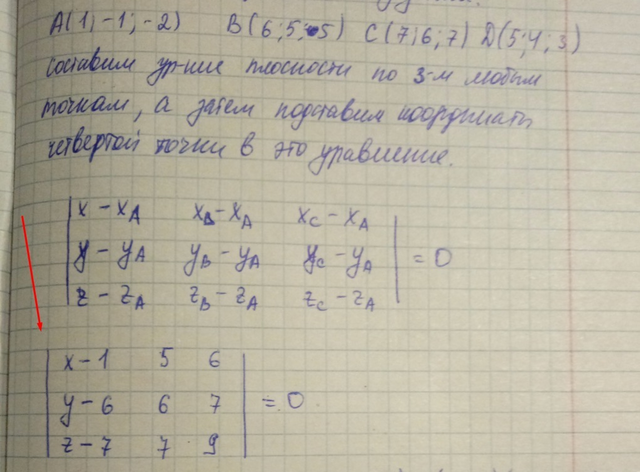 A(1;-1;-2) B(6;5;5) C(7;6;7) D(5;4;3)
составим ур-ние плоскости по 3-м любым
точкам, а затем подставим координаты
четвертой точки в это уравнение.
| x - x_A x_B - x_A x_C - x_A |
| y - y_A y_B - y_A y_C - y_A | = 0
| z - z_A z_B - z_A z_C - z_A |
| x - 1 5 6 |
| y - 6 6 7 | = 0
| z - 7 7 9 |